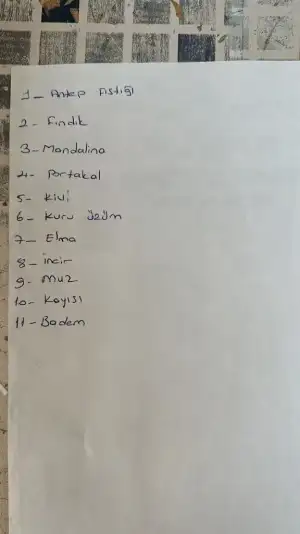 1- Antep Fıstığı
2- Fındık
3- Mandalina
4- Portakal
5- Kivi
6- Kuru üzüm
7- Elma
8- incir
9- muz
10- Kayısı
11- Badem